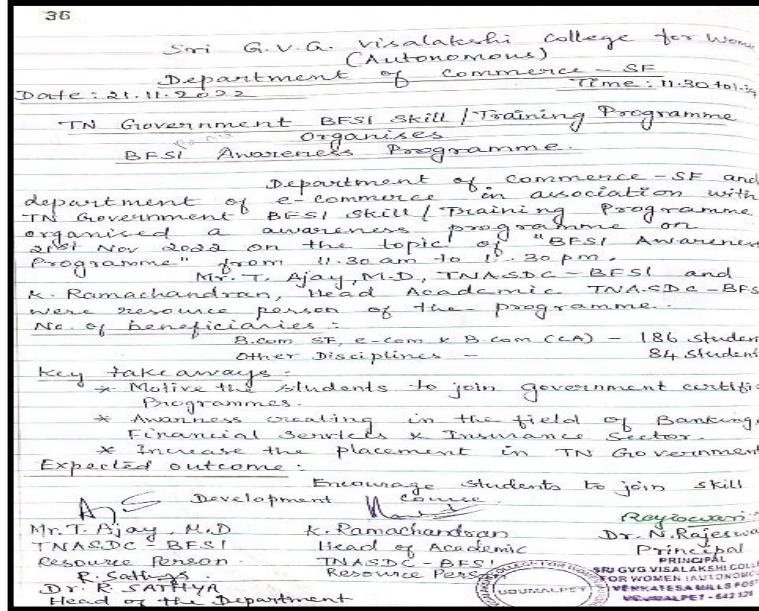 36
Sri G.V.G. Visalakshi College for Wome
(Autonomous)
Department of Commerce - SF
Date: 21.11.2022 Time: 11.30 to 1.30
TN Government BFSI Skill / Training Programme
Organises
BFSI Awareness Programme.
Department of Commerce - SF and
department of e-commerce in association with
TN Government BFSI Skill / Training Programme
organised a awareness programme on
21st Nov 2022 on the topic of "BFSI Awareness
Programme" from 11.30 am to 1.30 pm.
Mr. T. Ajay, M.D, TNASDC - BFSI and
K. Ramachandran, Head Academic TNASDC - BFS
were resource person of the programme.
No. of beneficiaries :
B.com SF, e-com & B.com (CA) - 186 Studen
Other Disciplines - 84 Student
Key takeaways :
* Motive the students to join government certific
Programmes.
* Awarness creating in the field of Banking,
Financial Services & Insurance Sector.
* Increase the placement in TN Government
Expected outcome :
Encourage students to join skill
Development Course.
Mr. T. Ajay, M.D K. Ramachandran Dr. N. Rajeswa
TNASDC - BFSI Head of Academic Principal
Resource Person. TNASDC - BFSI PRINCIPAL
Resource Person SRI GVG VISALAKSHI COLL
R. Sathya FOR WOMEN (AUTONOMOUS
Dr. R. SATHYA UDUMALPET VENKATESA MILLS POST
Head of the Department UDUMALPET - 642 128